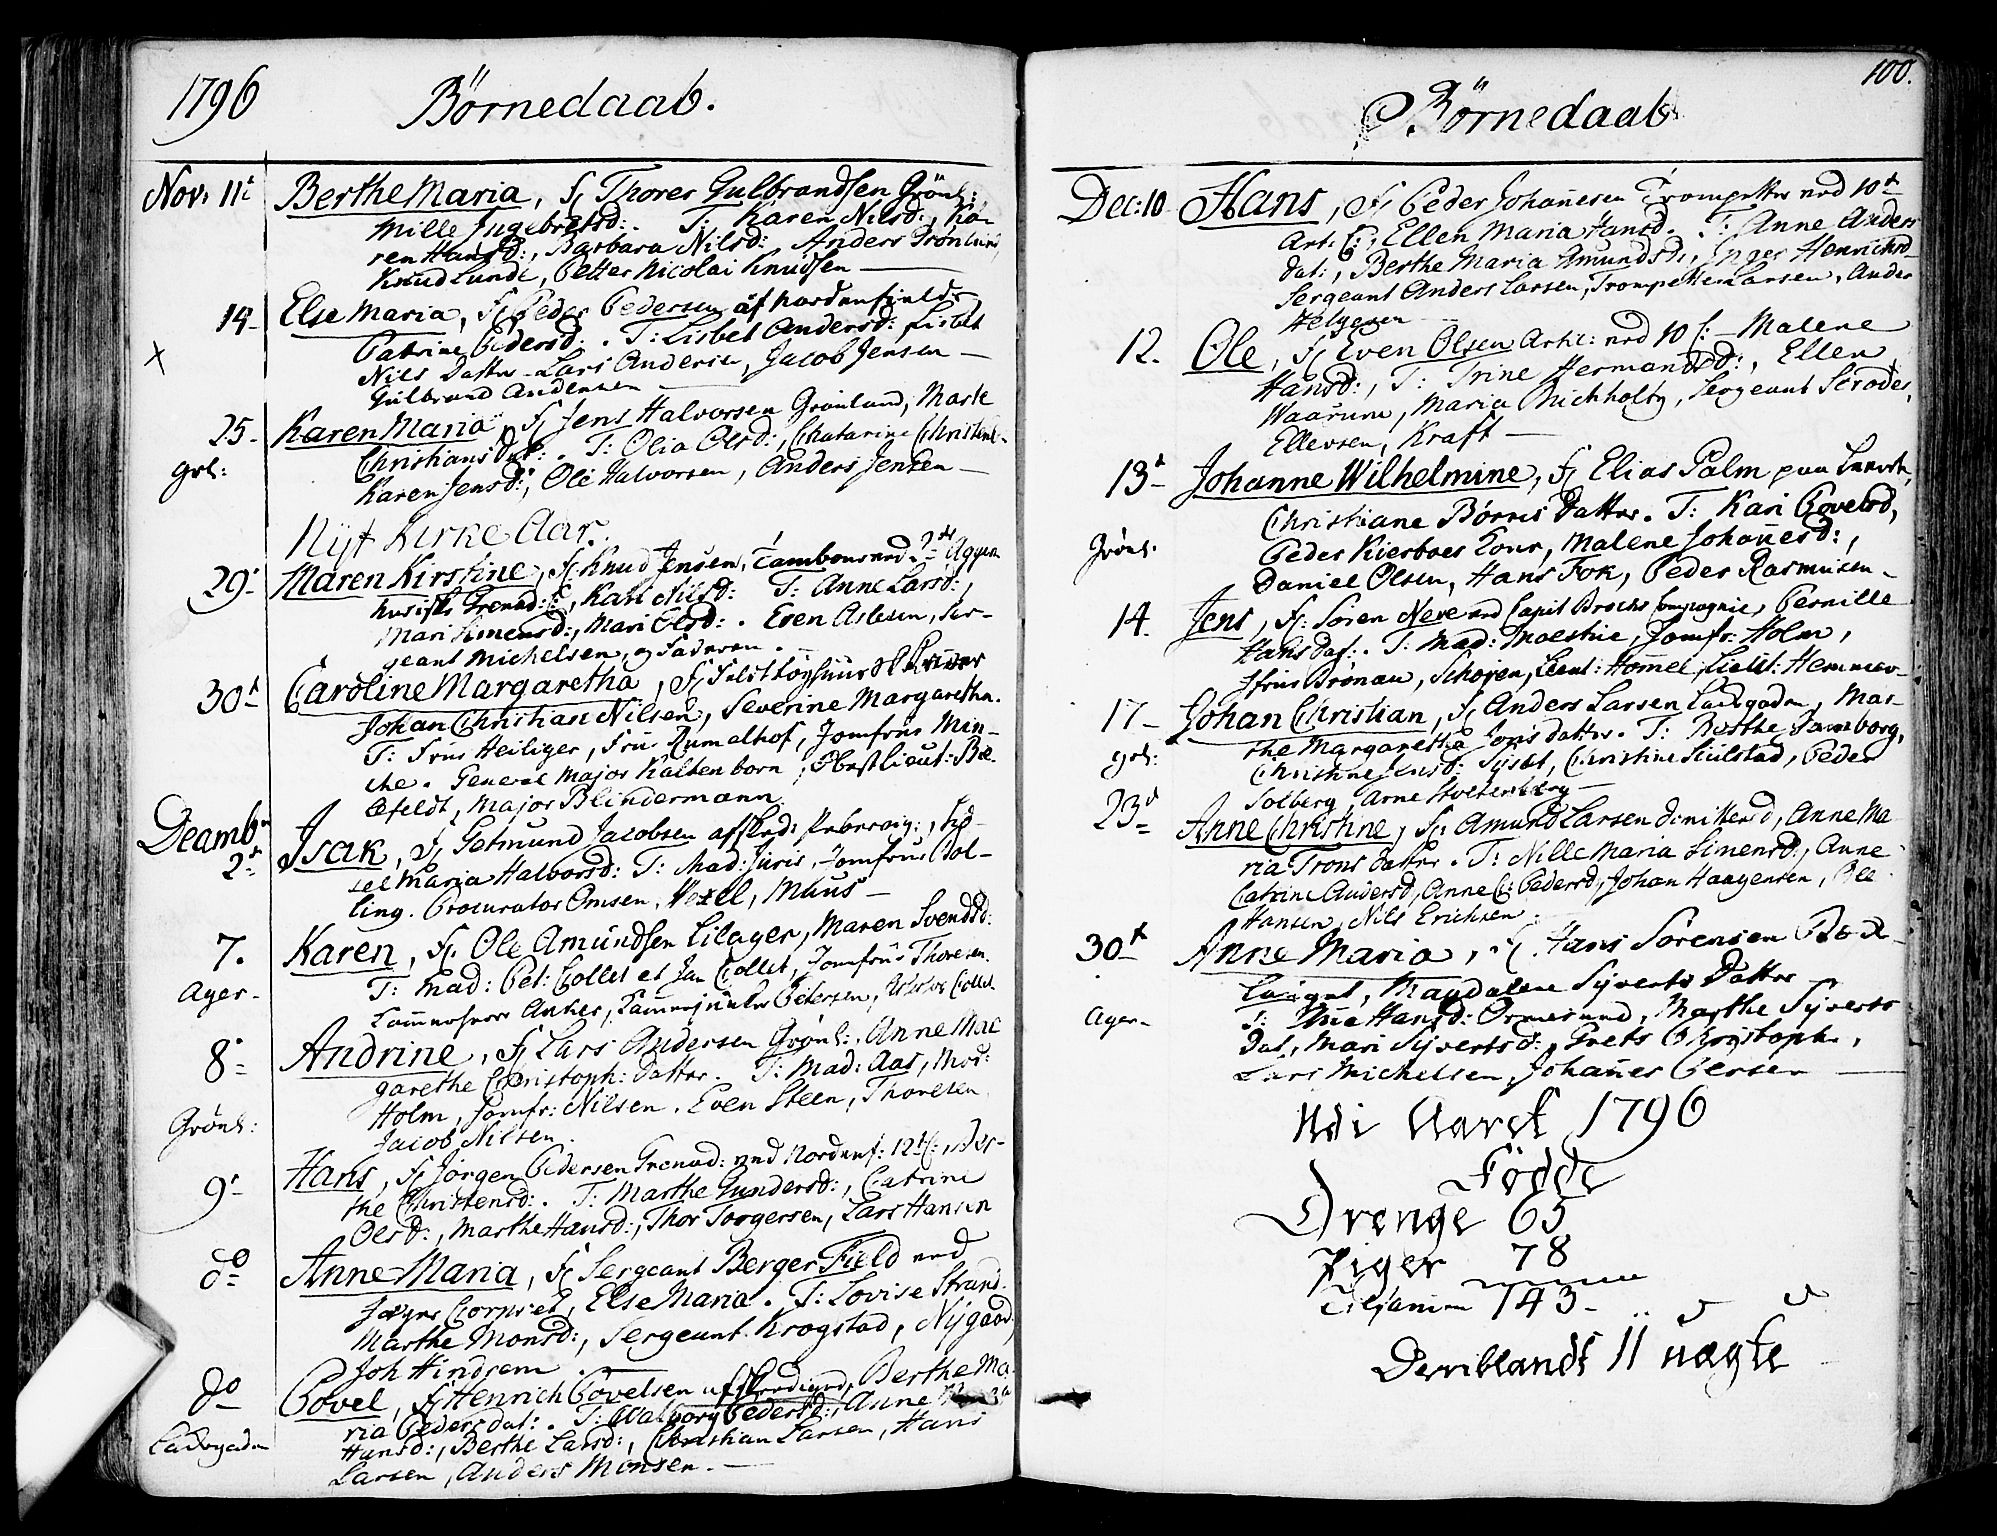 1796 Börnedaab.
Nov: 11t Berthe Maria, F. Thorer Gulbrandsen Grönl:
Mille Ingebretsd:. T: Karen Nilsd:, Ka-
ren Hansd:, Barbara Nilsd:, Anders Grönlund,
Knud Lunde, Petter Nicolai Knudsen
14- Else Maria, F. Peder Pedersen af nordenfield:
Catrine Pedersd:. T: Lisbet Andersd: Lisbet
x Nils Datter - Lars Andersen, Jacob Jensen -
Gulbrand Andersen
25- Karen Maria F. Jens Halvorsen Grönland, Marte
Christians Dat:. T: Olia Olsd:, Chatarine Christensd.
grl: Karen Jensd:, Ole Halvorsen, Anders Jensen -
Nyt Kirke Aar.
29- Maren Kirstine, F. Knud Jensen, Tambour ved 2d Agger-
husiske Grenad: C:, Kari Nilsd: T: Anne Larsd:,
Mari Simensd:, Mari Olsd:. Even Aslesen, Ser-
geant Michelsen, og Faderen.
30t Caroline Margaretha, F.
Johan Christian Nilsen, Severine Margaretha.
T: Frue Heiliger, Frue Rumelhof, Jomfrue Min-
che. General Major Kaltenborn, Obestlieut: Bæ-
efeldt, Major Blindermann.
Decemb
2t Isak, F. Getmund Jacobsen afsked:
sel Maria Halvorsd: T: Mad: Juris, Jomfrue Bol-
ling. Procurator Omsen, Wexel, Muus -
7. Karen, F. Ole Amundsen Lilager, Maren Svendsd:
Ager- T: Mad: Pet: Collet et Ja Collet, Jomfrue Thoresen.
Cammerherr Anker, Cammerjunker Petersen, Collet
8- Andrine, F. Lars Andersen Grönl:, Anne Mar
garethe Christoph: Datter. T: Mad: Aas, Mad:
Grönl: Holm, Jomfr: Nilsen. Even Steen, Thoresen
Jacob Nilsen.
9- Hans, F. Jörgen Pedersen Grenad: ved Nordenf: 12t C:, Ber-
the Christensd:. T: Marthe Gundersd:, Catrine
Olsd:, Marthe Hansd:, Thor Torgersen, Lars Hansen
do Anne Maria, F. Sergeant Berger Field ved
Jæger Corpset, Else Maria. T: Lovise Strand.
Marthe Monsd:, Sergeant Krogstad, Nygaard,
Joh Hindsam.
do Povel, F. Henrich Povelsen afskediged, Berthe Ma-
ria Peders dat:. T: Walborg Pedersd:, Anne
Ladegaden Hansd:, Berthe Larsd:, Christian Larsen, Hans
Larsen, Anders Monsen.
100.
Börnedaab
Dec: 10 Hans, F. Peder Johannesen Trompetter ved 10t
Art: C:, Ellen Maria Hansd. T: Anne Anders
dat:, Berthe Maria Amundsd:, Inger Henrichsd.
Sergeant Anders Larsen, Trompetter Larsen, Ander
Helgesen
12. Ole, F. Even Olsen Artil: ved 10 C: - Malene
Hansd:, T: Trine Hermandsd:, Ellen
Waarum, Maria Buchholtz, Sergeant Scrøder,
Ellevsen, Kraft -
13t Johanne Wilhelmine, F. Elias Palm paa
Christiane Børres Datter. T: Kari Povelsd,
Grönl. Peder Kierboes Kone, Malene Johannesd:,
Daniel Olsen, Hans Fok, Peder Rasmusen -
14. Jens, F: Sören Neve ved Capit Brochs Compagnie, Pernille
Hans dat:. T: Mad: Moestue, Jomfr: Holm,
Jfrue Bronau, Schojen, Lieut: Hommel, Lieut: Hemmer-
17- Johan Christian, F. Anders Larsen Ladegaden, Mar-
the Margaretha Joris datter. T: Berthe Samborg,
grl: Christine Jensd: Syset, Christine Skiilstad, Peder
Solberg, Arne Hvetenberg -
23d Anne Christine, F. Amund Larsen dimitterd, Anne Ma
ria Trons datter. T: Nille Maria Simensd:, Anne
Catrine Andersd, Anne C: Pedersd, Johan Haagensen, Ole
Hansen, Nils Erichsen.
30t Anne Maria, F. Hans Sörensen Bed-
Laugnt, Magdalene Syverts Datter
Ager- T: Une Hansd: Ormesund, Marthe Syverts
Dat, Mari Syvertsd:, Grete Christoph.,
Lars Michelsen, Johannes Persen
Udi Aaret 1796
Födde
Drenge 65
Piger 78
Tilsamen 143-
Deriblandt 11 uægte